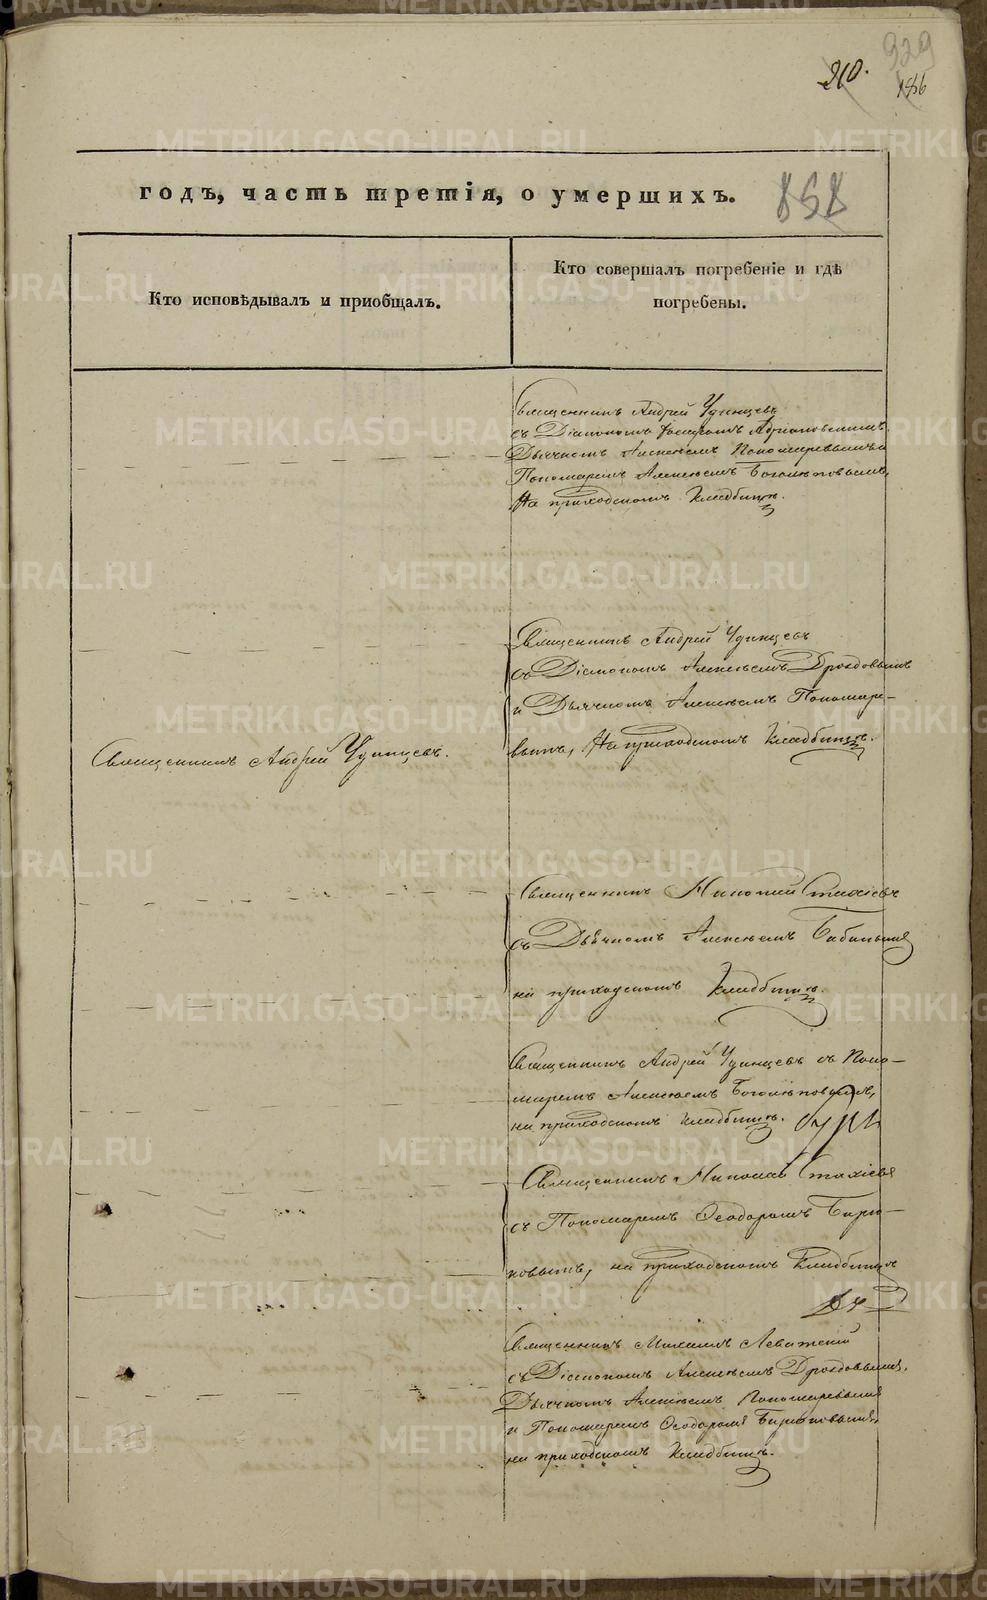 929
210.
186
годъ, часть третія, о умершихъ.
858
Кто исповѣдывалъ и приобщалъ.
Кто совершалъ погребеніе и гдѣ
погребены.
Священникъ Андрей Удинцевъ
съ Діакономъ
Дьячкомъ Алексѣемъ Пономаревымъ и
Пономаремъ Алексѣемъ Боголѣповымъ,
На приходскомъ кладбищѣ.
Священникъ Андрей Удинцевъ
съ Діакономъ Алексѣемъ Дроздовымъ
и Дьячкомъ Алексѣемъ Пономаре-
вымъ, На приходскомъ кладбищѣ.
Священникъ Андрей Удинцевъ.
Священникъ Николай Стахіевъ
съ Дьячкомъ Алексѣемъ
на приходскомъ Кладбищѣ.
Священникъ Андрей Удинцевъ съ Поно-
маремъ Алексѣемъ Боголѣповымъ,
на приходскомъ кладбищѣ.
Священникъ Николай Стахіевъ
съ Пономаремъ Ѳеодоромъ Бирю-
ковымъ, на приходскомъ Кладбищѣ
Священникъ Михаилъ Левитскій
съ Діакономъ Алексѣемъ Дроздовымъ,
Дьячкомъ Алексѣемъ Пономаревымъ
и Пономаремъ Ѳеодоромъ Бирюковымъ,
на приходскомъ Кладбищѣ.
METRIKI.GASO-URAL.RU